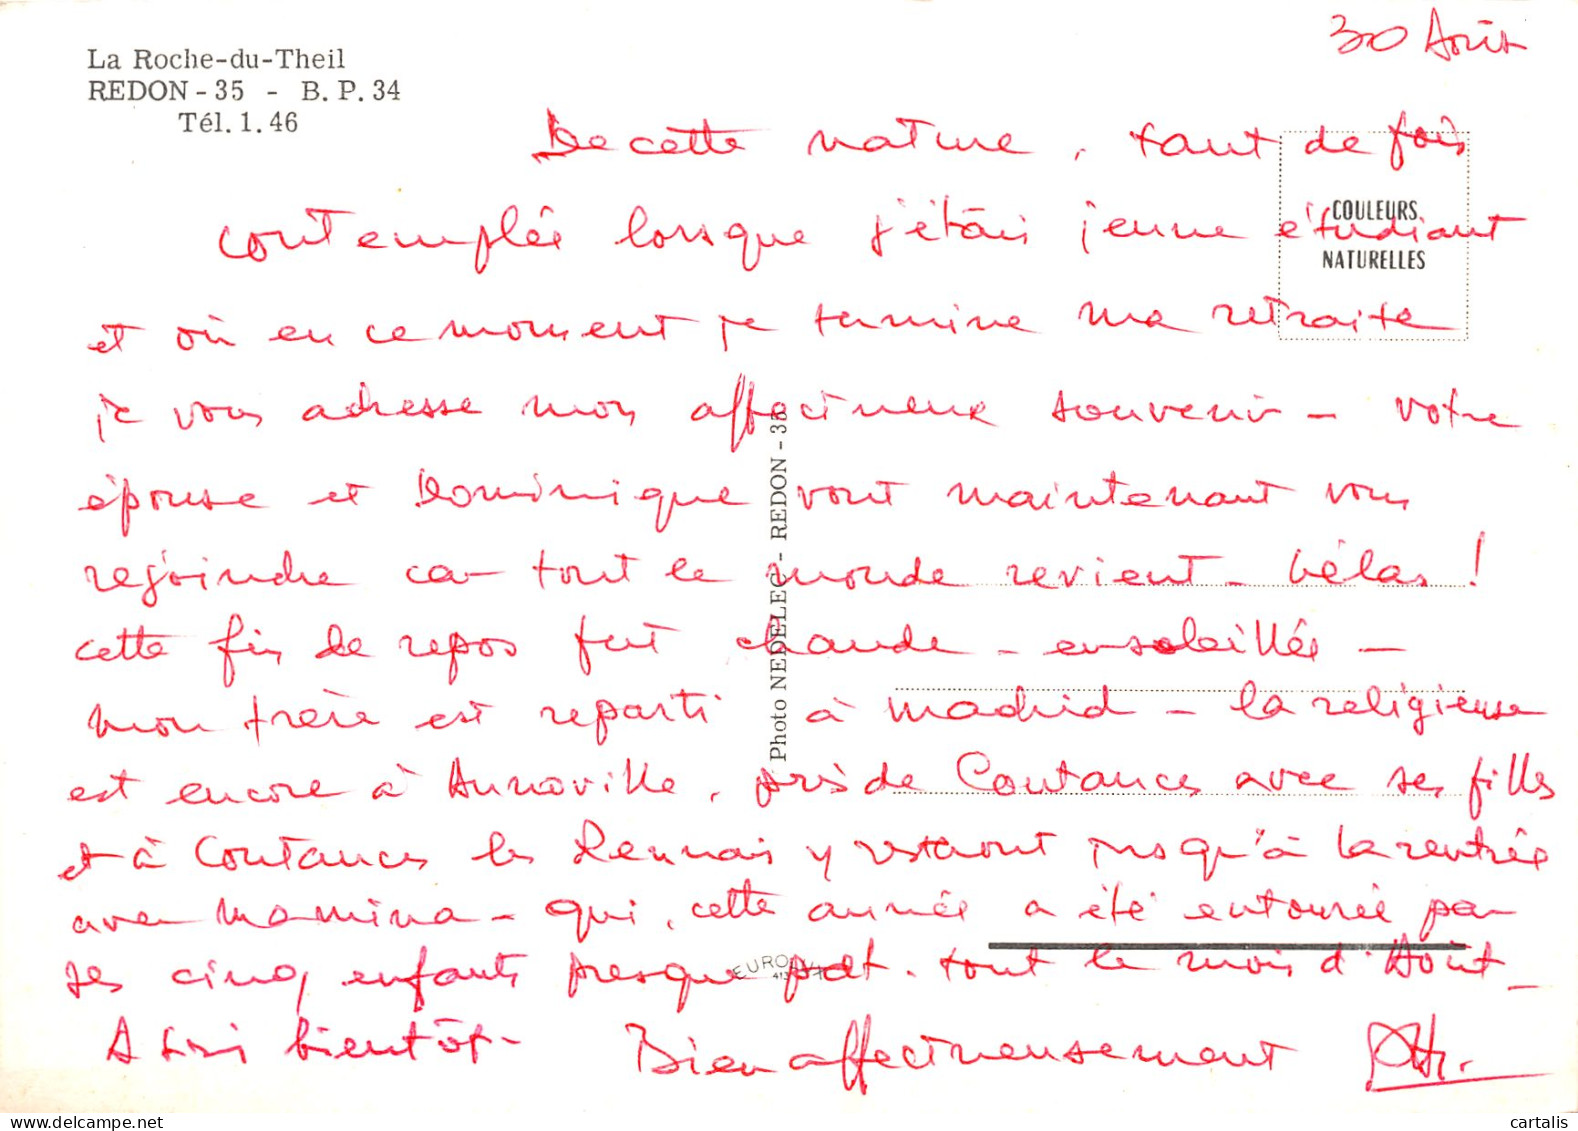 La Roche-du-Theil
REDON - 35 - B. P. 34
Tél. 1. 46
30 Août
De cette nature, tant de fois
contemplée lorsque j'étais jeune étudiant
COULEURS
NATURELLES
et où en ce moment je termine ma retraite
je vous adresse mon affectueux souvenir - votre
épouse et Dominique vont maintenant vous
rejoindre car tout le monde revient - hélas !
cette fin de repos fut chaude - ensoleillée -
mon frère est reparti à Madrid - la religieuse
est encore à Annoville, près de Coutances avec ses filles
et à Coutances les Rennais y restaont jusqu'à la rentrée
avec Mamina - qui, cette année a été entourée par
ses cinq enfants presque tout le mois d'Août -
A bientôt - Bien affectueusement
Photo NEDELEC - REDON - 35
cartalis